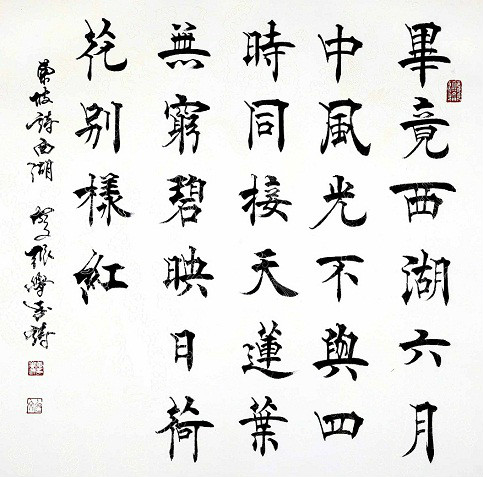 畢竟西湖六月
中風光不與四
時同接天蓮葉
無窮碧映日荷
花別樣紅
東坡詩西湖